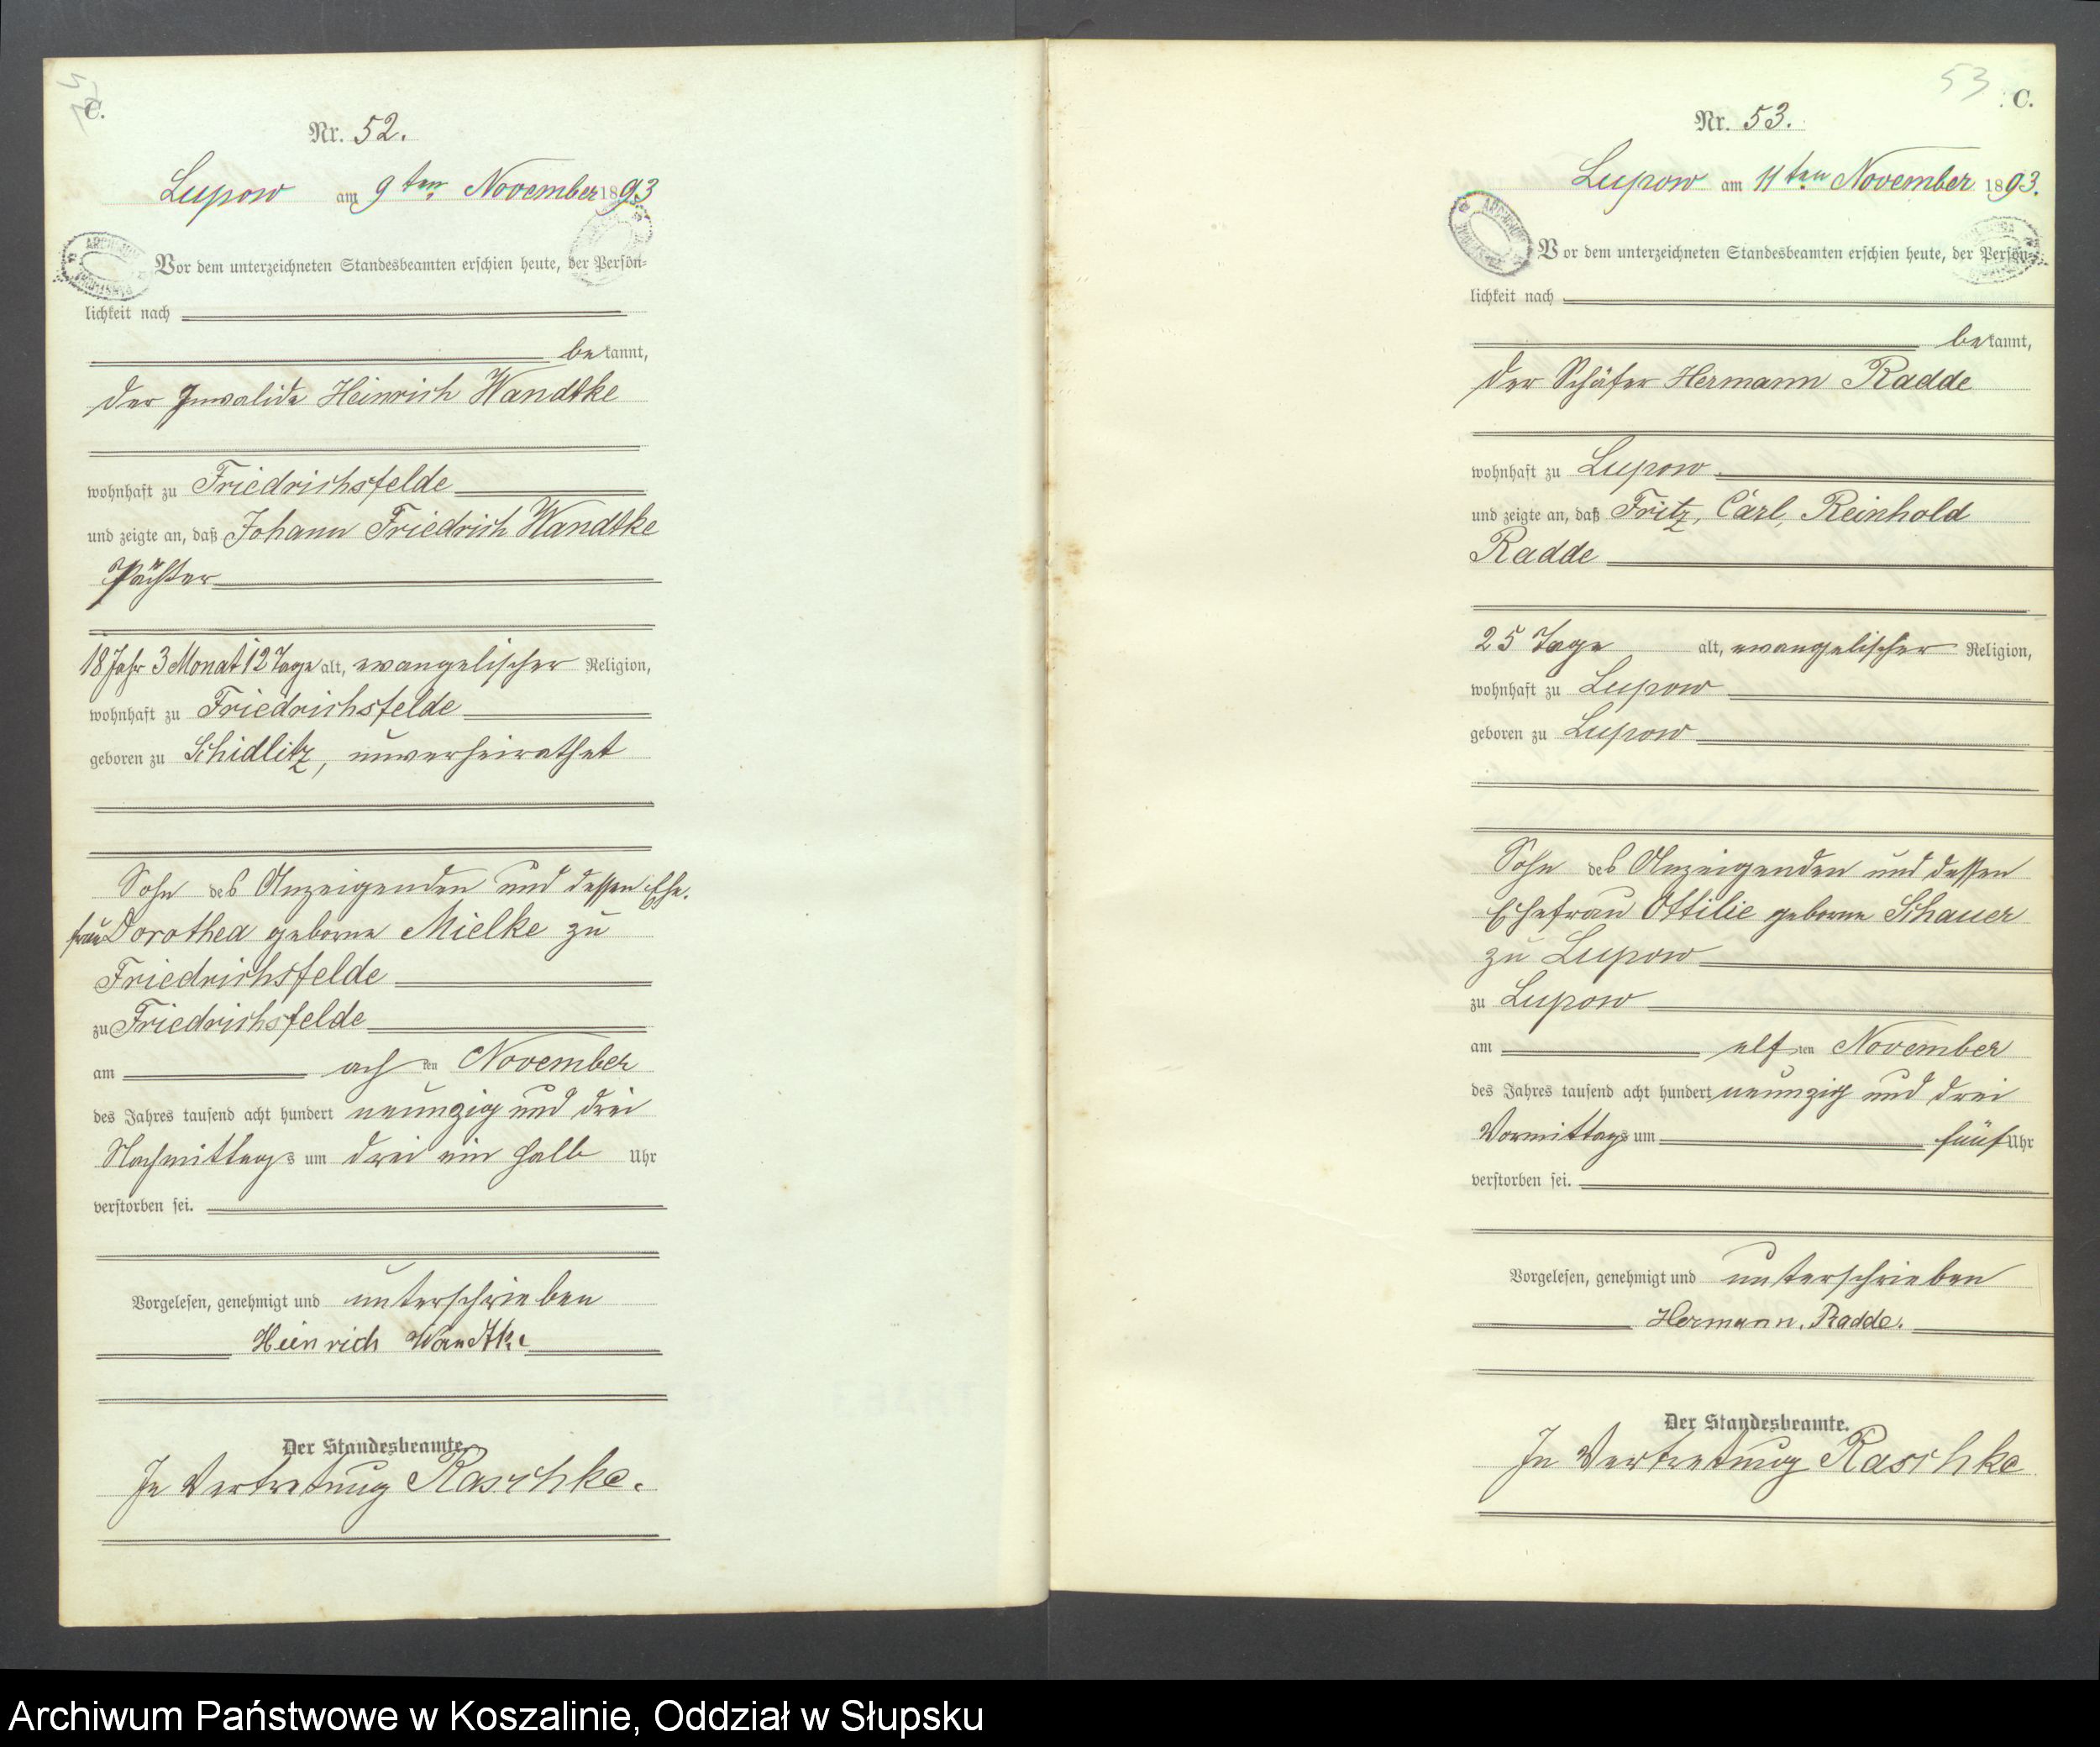 C.
Nr. 52.
Lupow am 9ten November 1893
Vor dem unterzeichneten Standesbeamten erschien heute, der Persön-
lichkeit nach
bekannt,
der Invalide Heinrich Wandtke
wohnhaft zu Friedrichsfelde
und zeigte an, daß Johann Friedrich Wandtke
18 Jahr 3 Monat 12 Tage alt, evangelischer Religion,
wohnhaft zu Friedrichsfelde
geboren zu Schidlitz, unverheirathet
Sohn des Anzeigenden und dessen Ehe.
frau Dorothea geborne Mielke zu
Friedrichsfelde
zu Friedrichsfelde
am achten November
des Jahres tausend acht hundert neunzig und drei
Nachmittags um drei ein halb Uhr
verstorben sei.
Vorgelesen, genehmigt und unterschrieben
Heinrich Wandtke
Der Standesbeamte.
In Vertretung Raschke.
53
C.
Nr. 53.
Lupow am 11ten November 1893.
Vor dem unterzeichneten Standesbeamten erschien heute, der Persön-
lichkeit nach
bekannt,
der Schäfer Hermann Radde
wohnhaft zu Lupow
und zeigte an, daß Fritz, Carl, Reinhold
Radde
25 Tage alt, evangelischer Religion,
wohnhaft zu Lupow
geboren zu Lupow
Sohn des Anzeigenden und dessen
Ehefrau Ottilie geborne Schauer
zu Lupow
zu Lupow
am elften November
des Jahres tausend acht hundert neunzig und drei
Vormittags um fünf Uhr
verstorben sei.
Vorgelesen, genehmigt und unterschrieben
Hermann. Radde.
Der Standesbeamte.
In Vertretung Raschke
Archiwum Państwowe w Koszalinie, Oddział w Słupsku